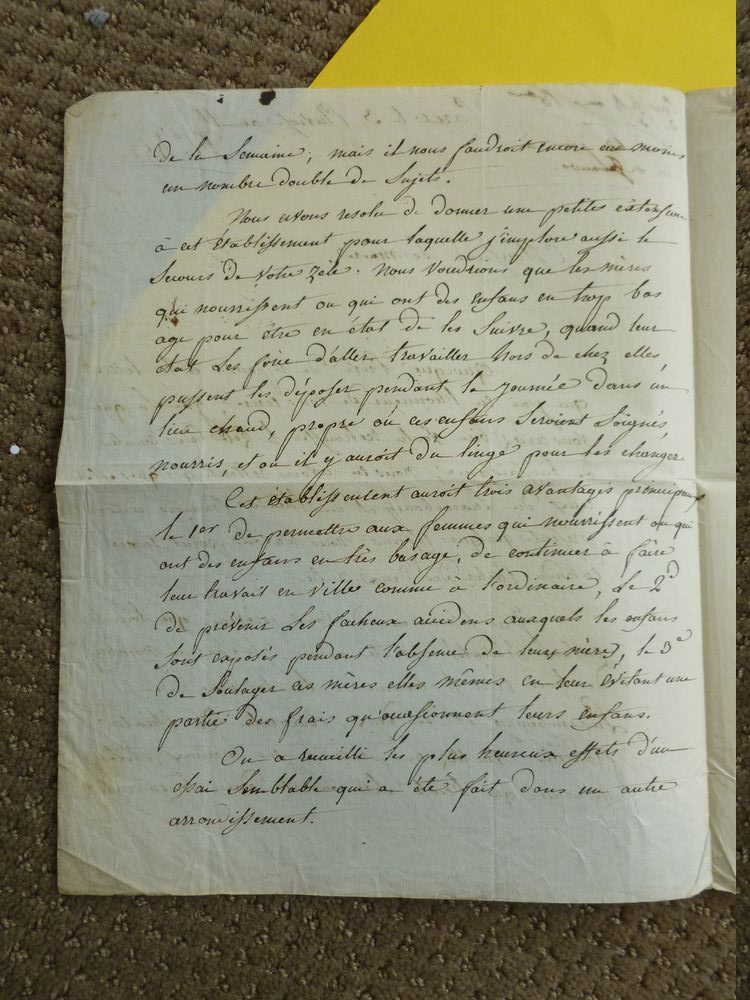 de la Semaine; mais il nous faudroit encore au moins
un nombre double de Sujets.
Nous avons resolu de donner une petites extension
à cet Etablissement pour laquelle j'implore aussi le
Secours de votre Zèle. Nous voudrions que les mères
qui nourrissent ou qui ont des enfans en trop bas
age pour être en état de les Suivre, quand leur
état les force d'aller travailler hors de chez elles,
pussent les déposer pendant la journée dans un
lieu chaud, propre où ces enfans Seroient Soignés,
nourris, et où il y auroit du linge pour les changer.
Cet établissement auroit trois avantages principaux
le 1er de permettre aux femmes qui nourrissent ou qui
ont des enfans en très bas age, de continuer à faire
leur travail en ville comme à l'ordinaire, Le 2d
de prévenir les facheux accidens auxquels les enfans
Sont exposés pendant l'absence de leurs mère, le 3e
de Soulager ces mères elles mêmes en leur évitant une
partie des frais qu'occasionnent leurs enfans.
On a recueilli les plus heureux effets d'un
essai Semblable qui a été fait dans un autre
arrondissement.